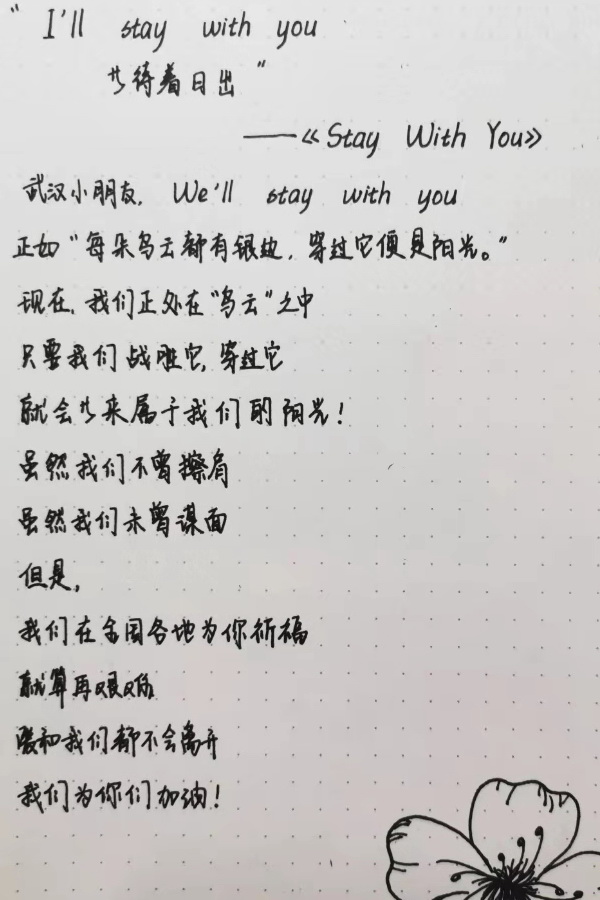 "I'll stay with you
共待着日出"
——《Stay With You》
武汉小朋友，We'll stay with you
正如"每朵乌云都有银边，穿过它便是阳光。"
现在，我们正处在"乌云"之中
只要我们战胜它，穿过它
就会共来属于我们的阳光！
虽然我们不曾擦肩
虽然我们未曾谋面
但是，
我们在全国各地为你祈福
就算再艰难
我们都不会离开
我们为你们加油！